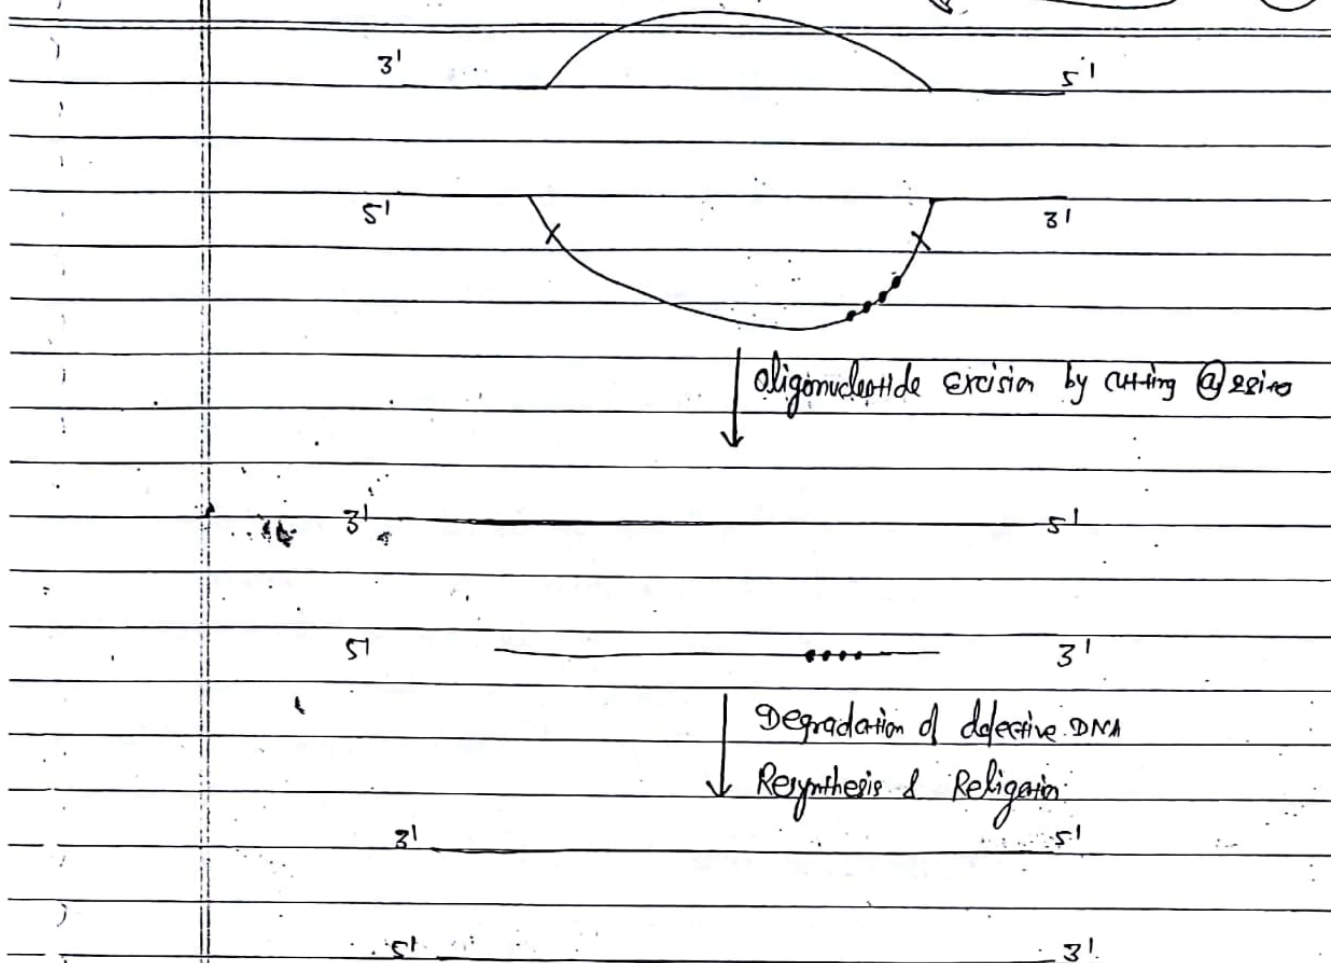 3' 5'
5' 3'
oligonucleotide excision by cutting @ 2 sites
3' 5'
5' 3'
Degradation of defective DNA
Resynthesis & Religation
3' 5'
5' 3'